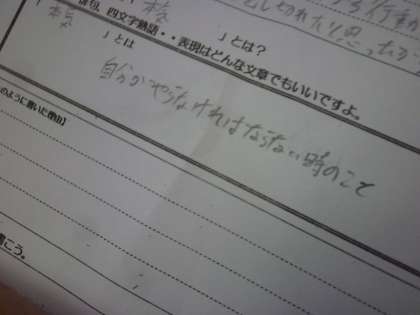 し切れたと思ったか
「 本気 」とは？
俳句、四文字熟語・・表現はどんな文章でもいいですよ。
「 本気 」とは
自分がやらなければならない時のこと
のように書いた理由】
書こう。